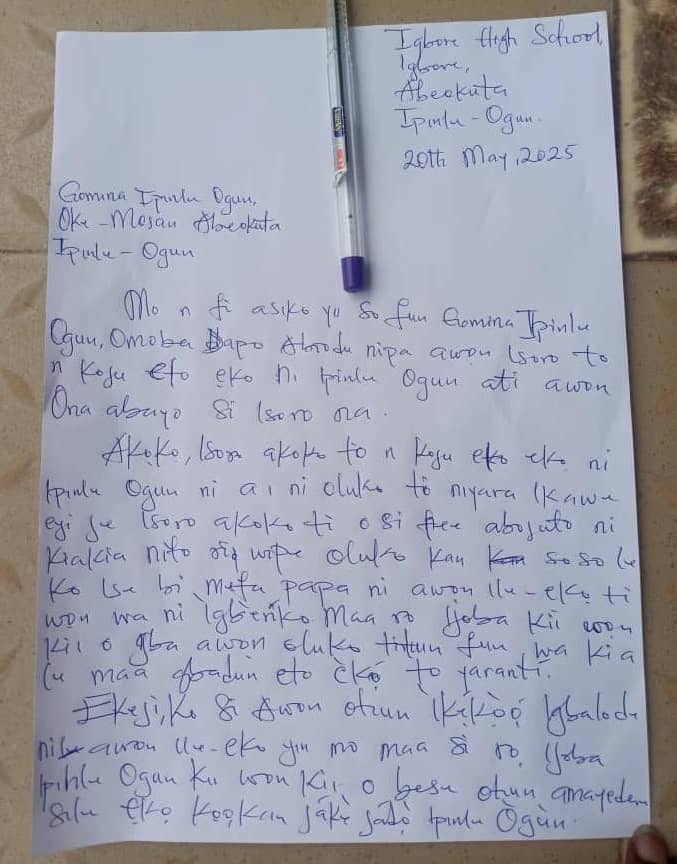 Igbore High School,
Igbore,
Abeokuta
Ipinlu-Ogun.
20th May, 2025
Gomina Ipinlu Ogun,
Oke-Mosan Abeokuta
Ipinlu-Ogun
Mo n fi asiko yu so fun Gomina Ipinlu
Ogun, Omoba Dapo Abiodu nipa awon Isoro to
n koju eto eko ni Ipinlu Ogun ati awon
Ona abayo si Isoro na.
Akoko, Isoro akoko to n koju eto eko ni
Ipinlu Ogun ni ai ni oluko to niyara Ikawe
eyi je Isoro akoko ti o si fee abojuto ni
kiakia nito wipe oluko kan so so le
ko Ise bi mefa papa ni awon Ile-eko ti
won wa ni Igberiko. Maa ro Ijoba kii won
kii o gba awon oluko titun fun wa kia
le maa gbadun eto èkọ́ to yaranti.
Ekeji, ko si Awon ohun Ikẹkòọ́ Igbalode
ni awon Ile-eko yin mo maa si ro Ijoba
Ipinlu Ogun kii won kii o besu ohun amayedem
silu ẹkọ kọọkan jákè jádò Ipinlu Ògùn.